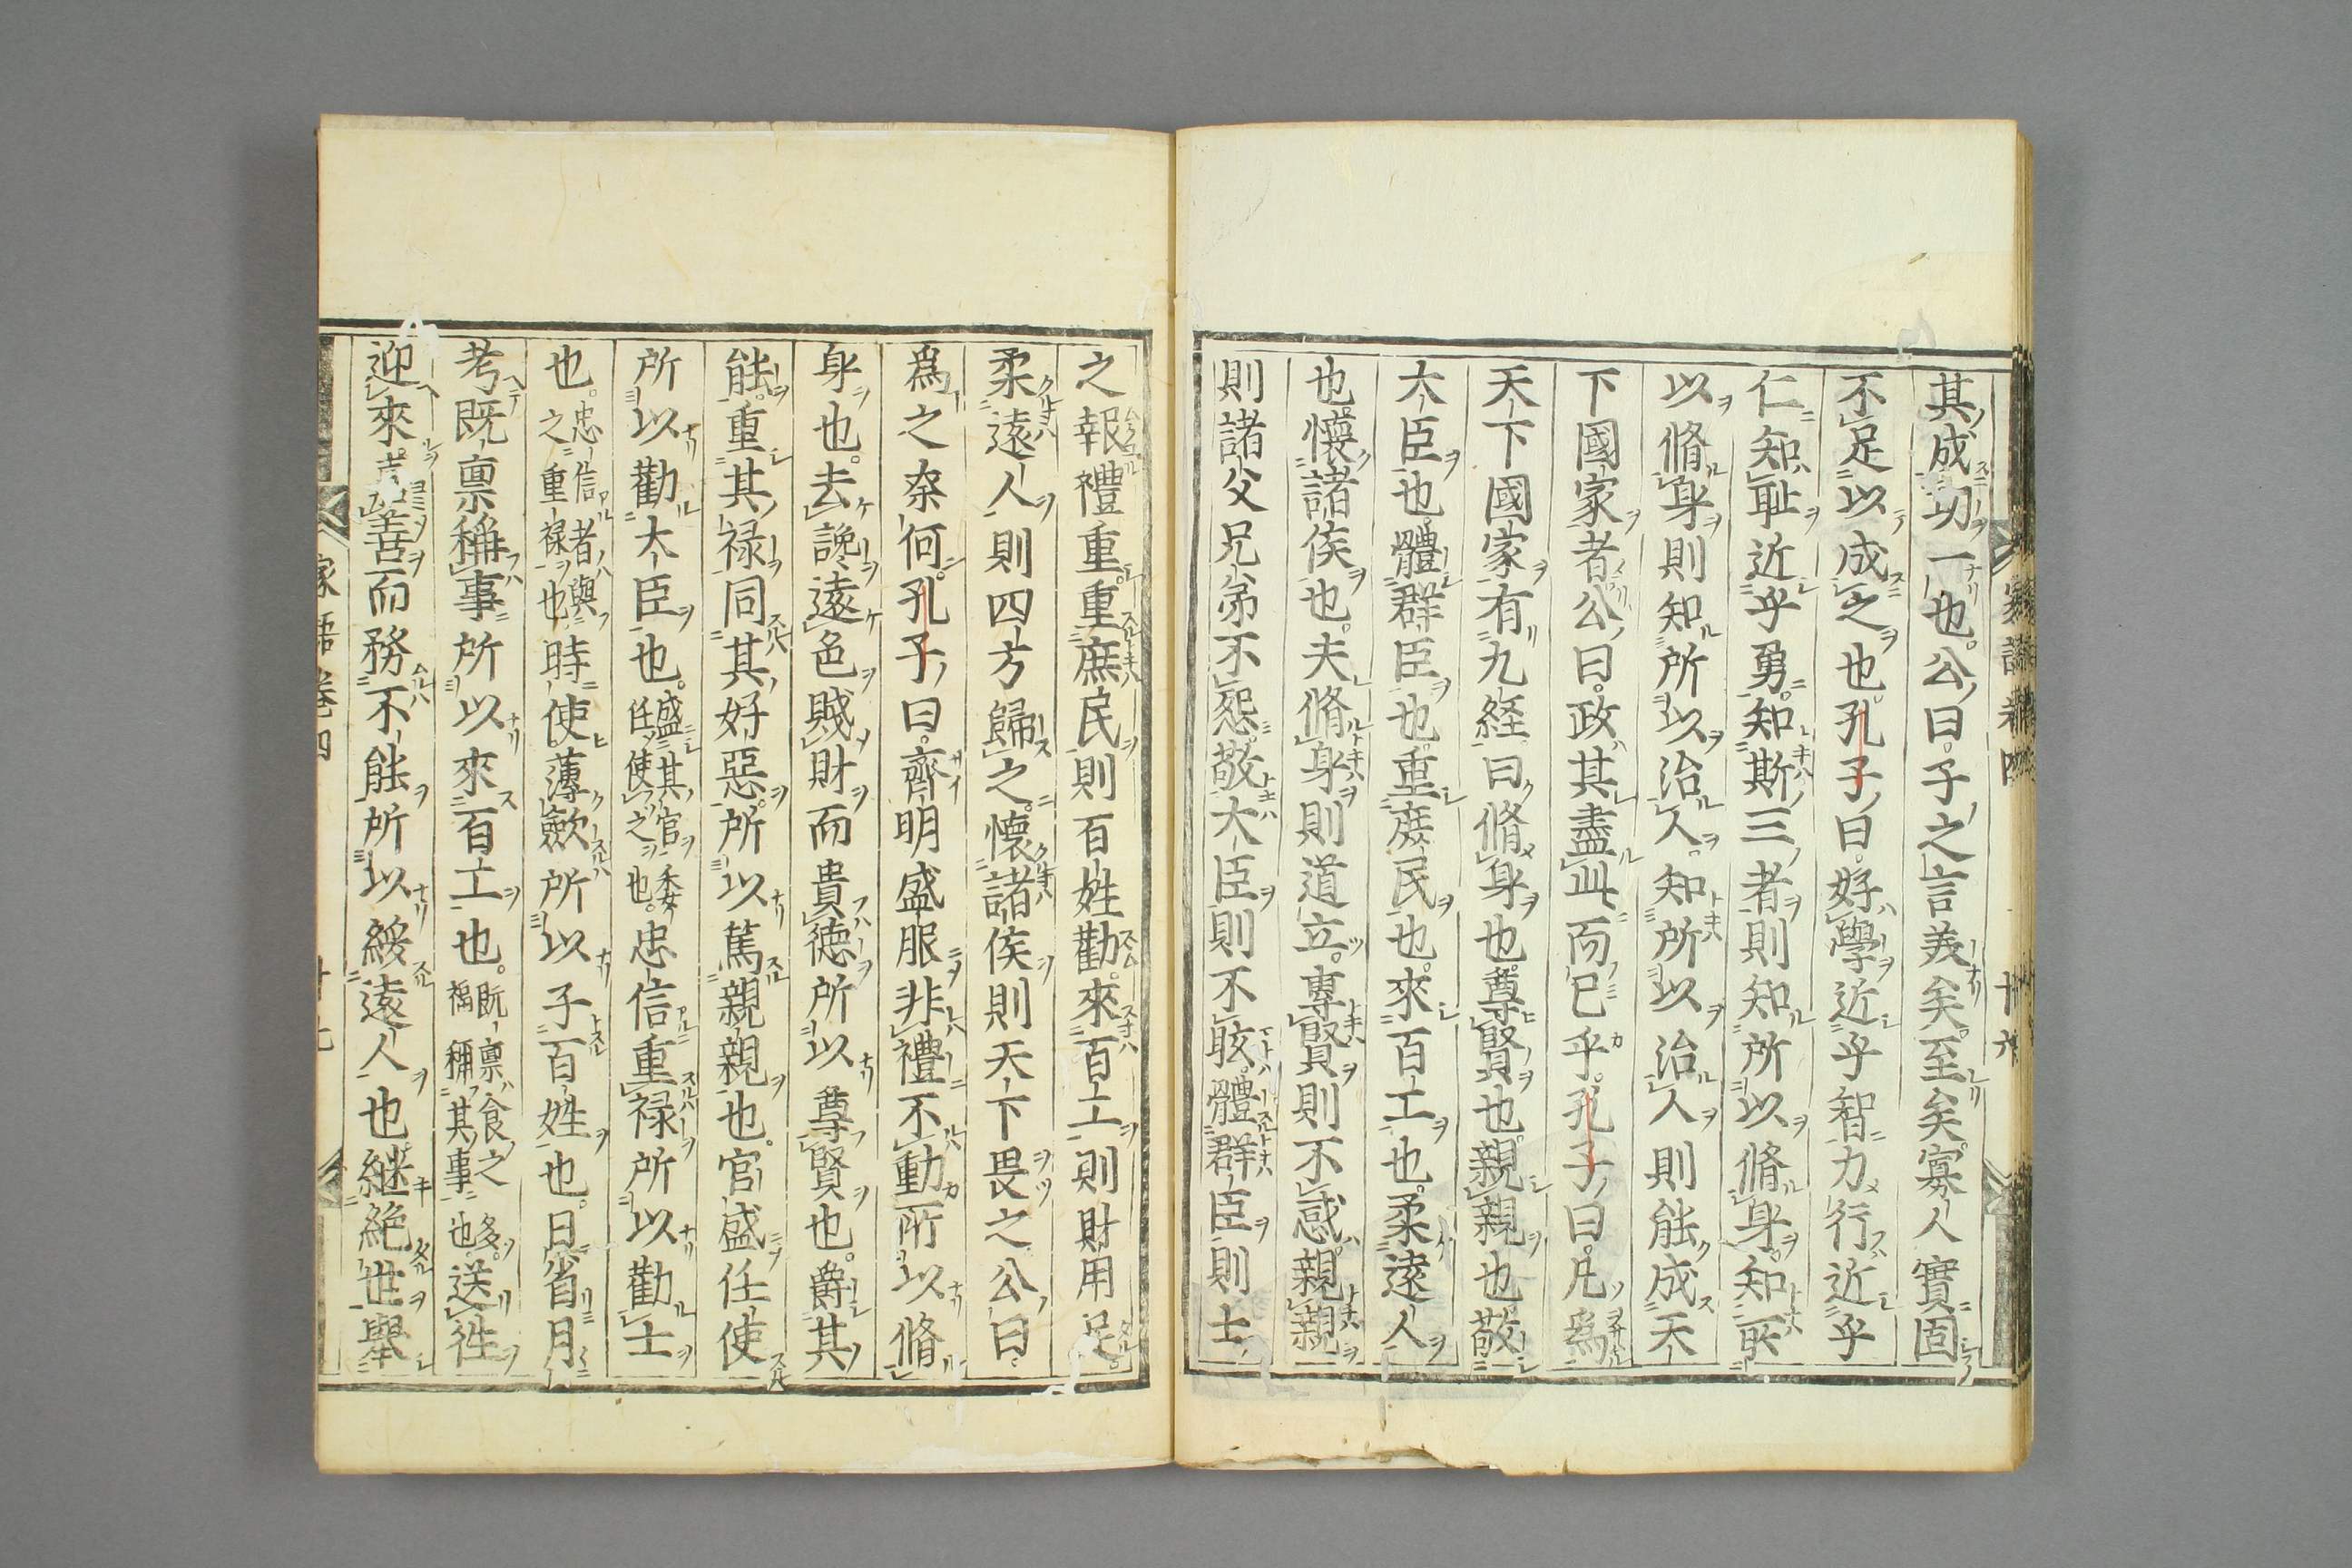 其成功一也。公曰。子之言美矣。至矣。寡人實固
不足以成之也。孔子曰。好學近乎智力行近乎
仁知耻近乎勇。知斯三者則知所以脩身。知所
以脩身則知所以治人。知所以治人則能成天
下國家者公曰。政其盡此而已乎。孔子曰。凡爲
天下國家有九経曰脩身也。尊賢也。親親也敬
大臣也體群臣也。重庶民也。來百工也。柔遠人
也。懷諸侯也。夫脩身則道立。尊賢則不惑。親親
則諸父兄弟不怨。敬大臣則不眩。體群臣則士
家語卷四
十六
之報禮重。重庶民則百姓勸。來百工則財用足
柔遠人則四方歸之。懷諸侯則天下畏之公曰
爲之奈何。孔子曰。齊明盛服非禮不動所以脩
身也。去讒遠色賤財而貴德所以尊賢也。爵其
能。重其禄同其好惡。所以篤親親也。官盛任使
所以勸大臣也。盛其官委任使之也。忠信重禄所以勸士
也。忠信者與之重禄也時使薄歛所以子百姓也。日省月
考既稟稱事所以來百工也。既稟食之多稱其事也。送往
迎來。善而務不能所以綏遠人也。継絶世舉
家語卷四
十七